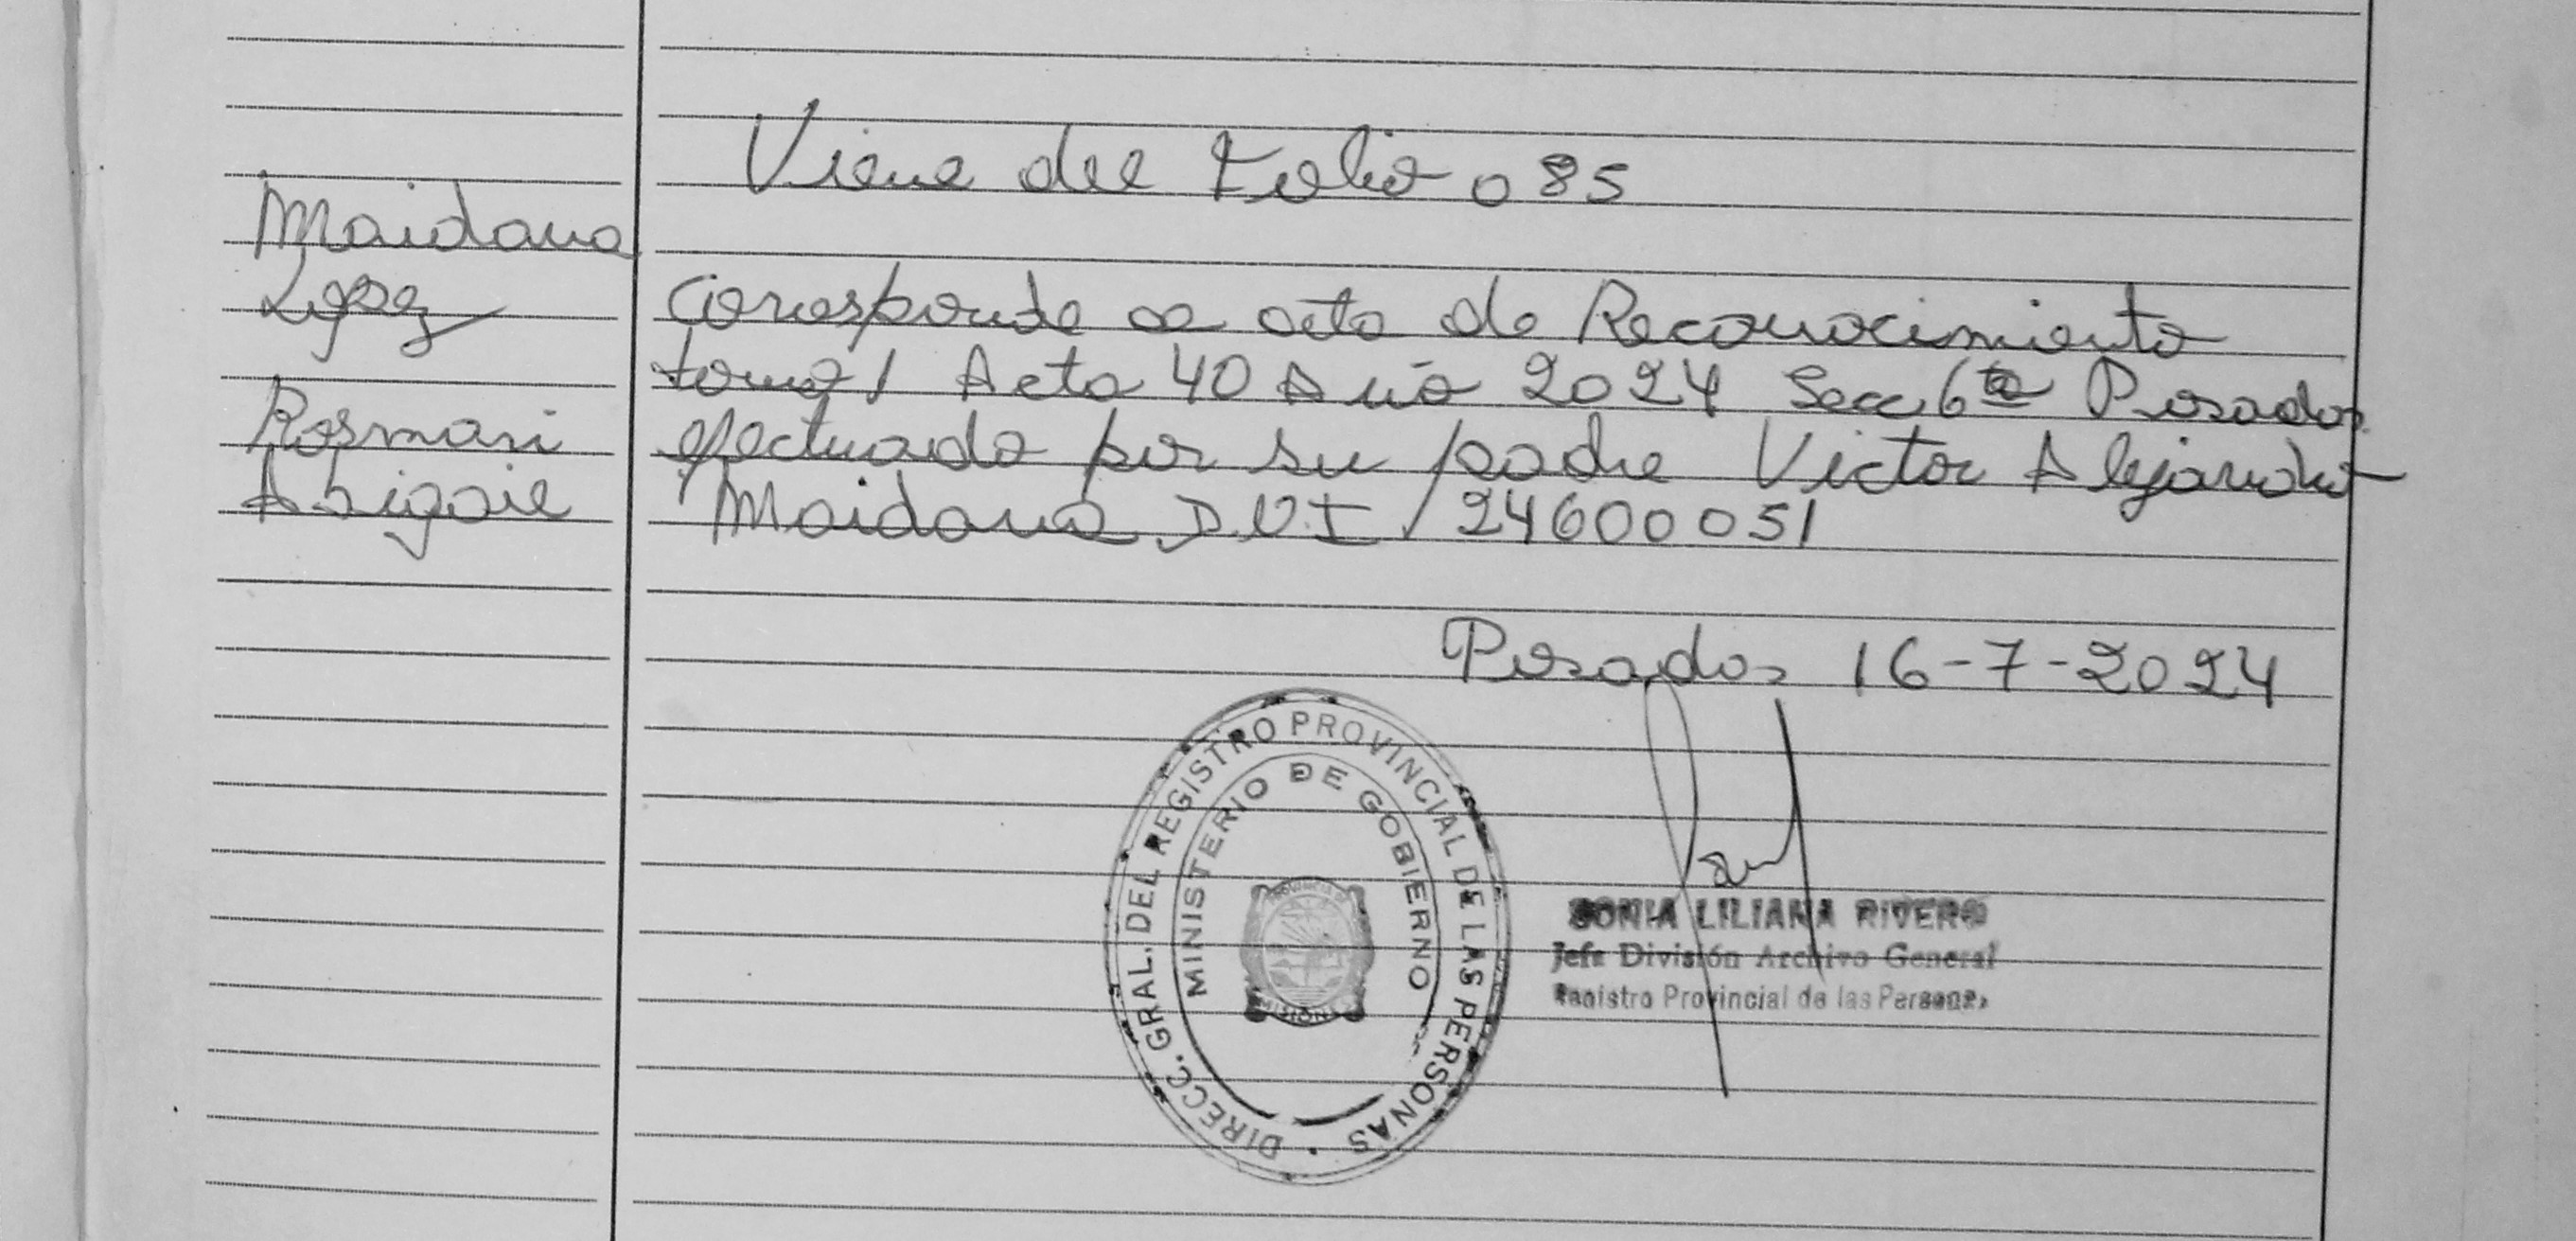 Viene del Folio 085
Maidana
Lopez
Rosmari
Abigail
Corresponde a acta de Reconocimiento
tomo 1 Acta 40 Año 2024 Secc 6ta Posadas
efectuada por su padre Victor Alejandro
Maidana D.N.I 24600051
Posadas 16-7-2024
DIRECC. GRAL. DEL REGISTRO PROVINCIAL DE LAS PERSONAS
MINISTERIO DE GOBIERNO
PROVINCIA DE
MISIONES
SONIA LILIANA RIVERO
Jefa División Archivo General
Registro Provincial de las Personas